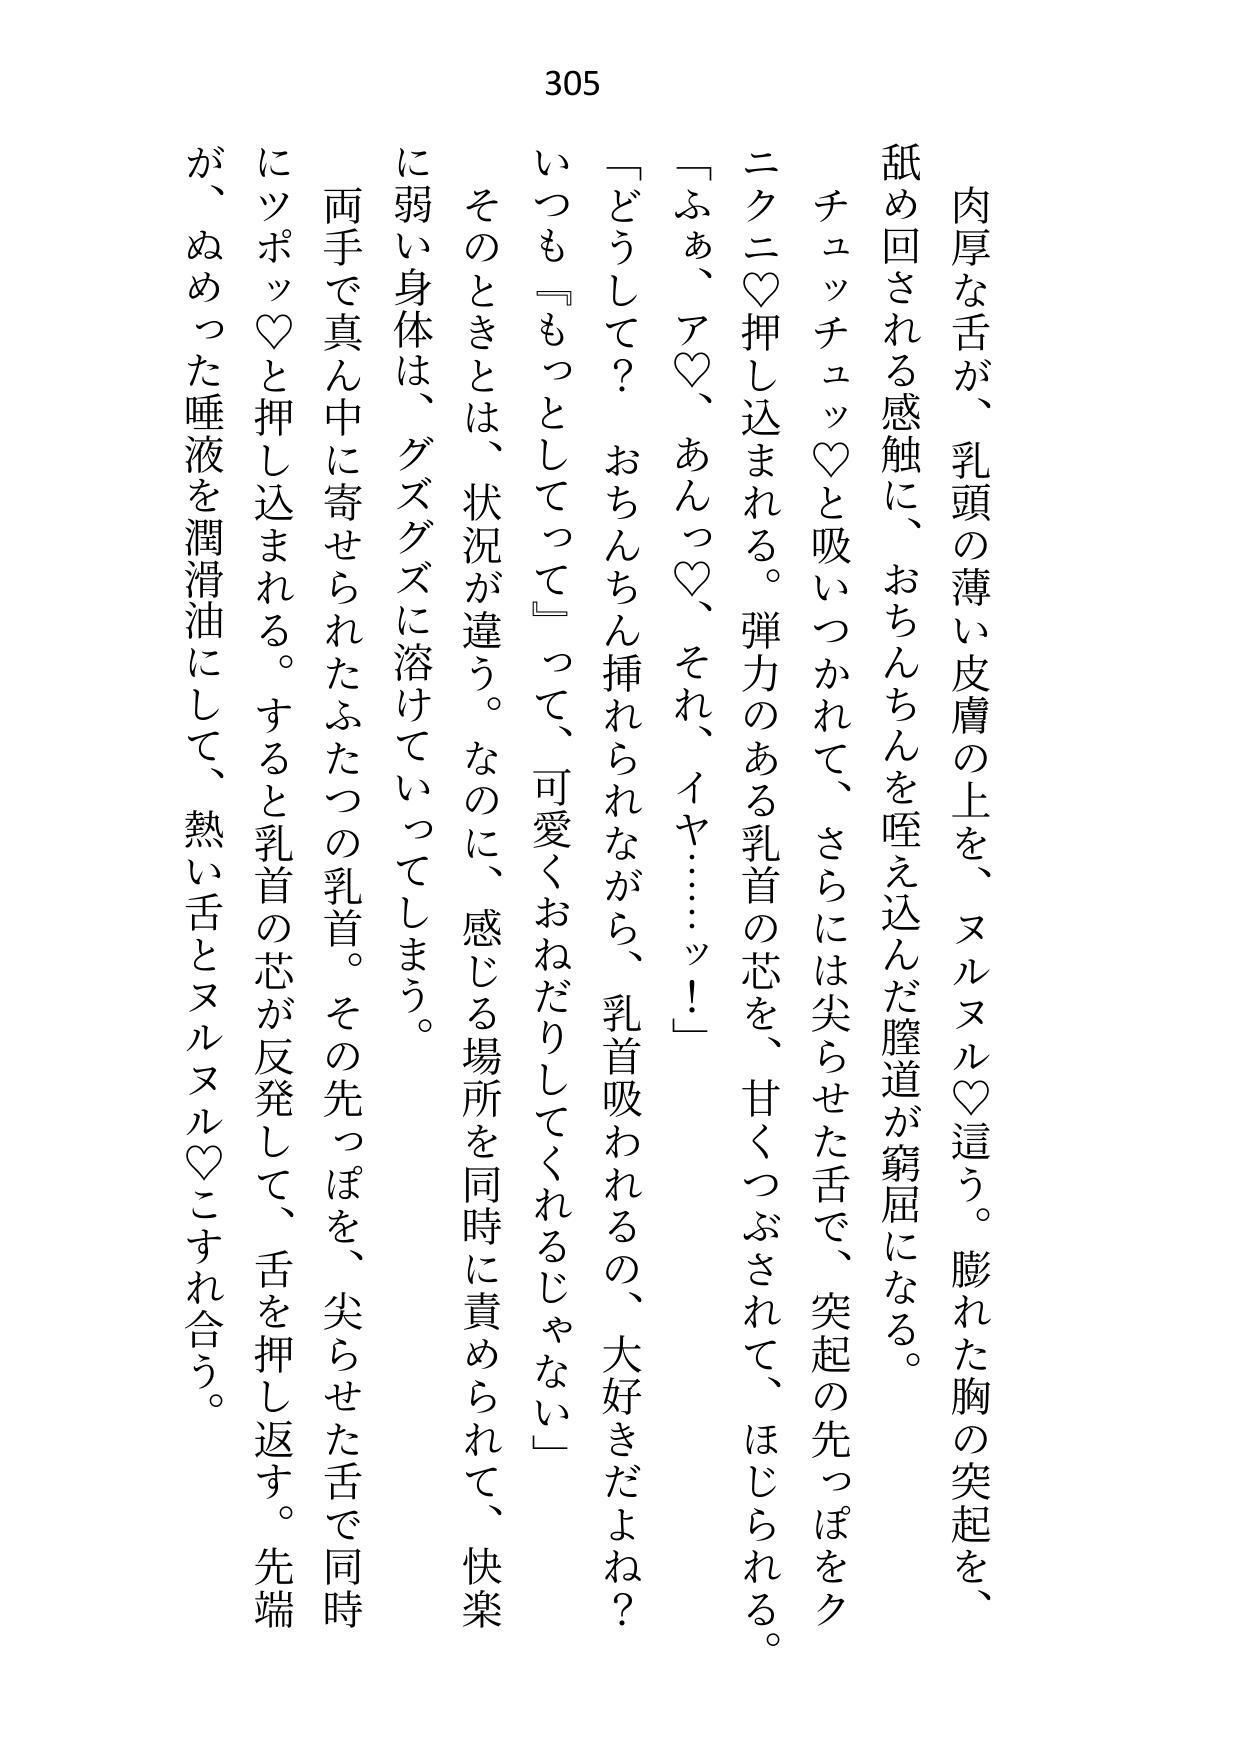 305
肉厚な舌が、乳頭の薄い皮膚の上を、ヌルヌル♡這う。膨れた胸の突起を、
舐め回される感触に、おちんちんを咥え込んだ膣道が窮屈になる。
チュッチュッ♡と吸いつかれて、さらには尖らせた舌で、突起の先っぽをク
ニクニ♡押し込まれる。弾力のある乳首の芯を、甘くつぶされて、ほじられる。
「ふぁ、ア♡、あんっ♡、それ、イヤ……ッ！」
「どうして？　おちんちん挿れられながら、乳首吸われるの、大好きだよね？
いつも『もっとしてって』って、可愛くおねだりしてくれるじゃない」
そのときとは、状況が違う。なのに、感じる場所を同時に責められて、快楽
に弱い身体は、グズグズに溶けていってしまう。
両手で真ん中に寄せられたふたつの乳首。その先っぽを、尖らせた舌で同時
にツポッ♡と押し込まれる。すると乳首の芯が反発して、舌を押し返す。先端
が、ぬめった唾液を潤滑油にして、熱い舌とヌルヌル♡こすれ合う。